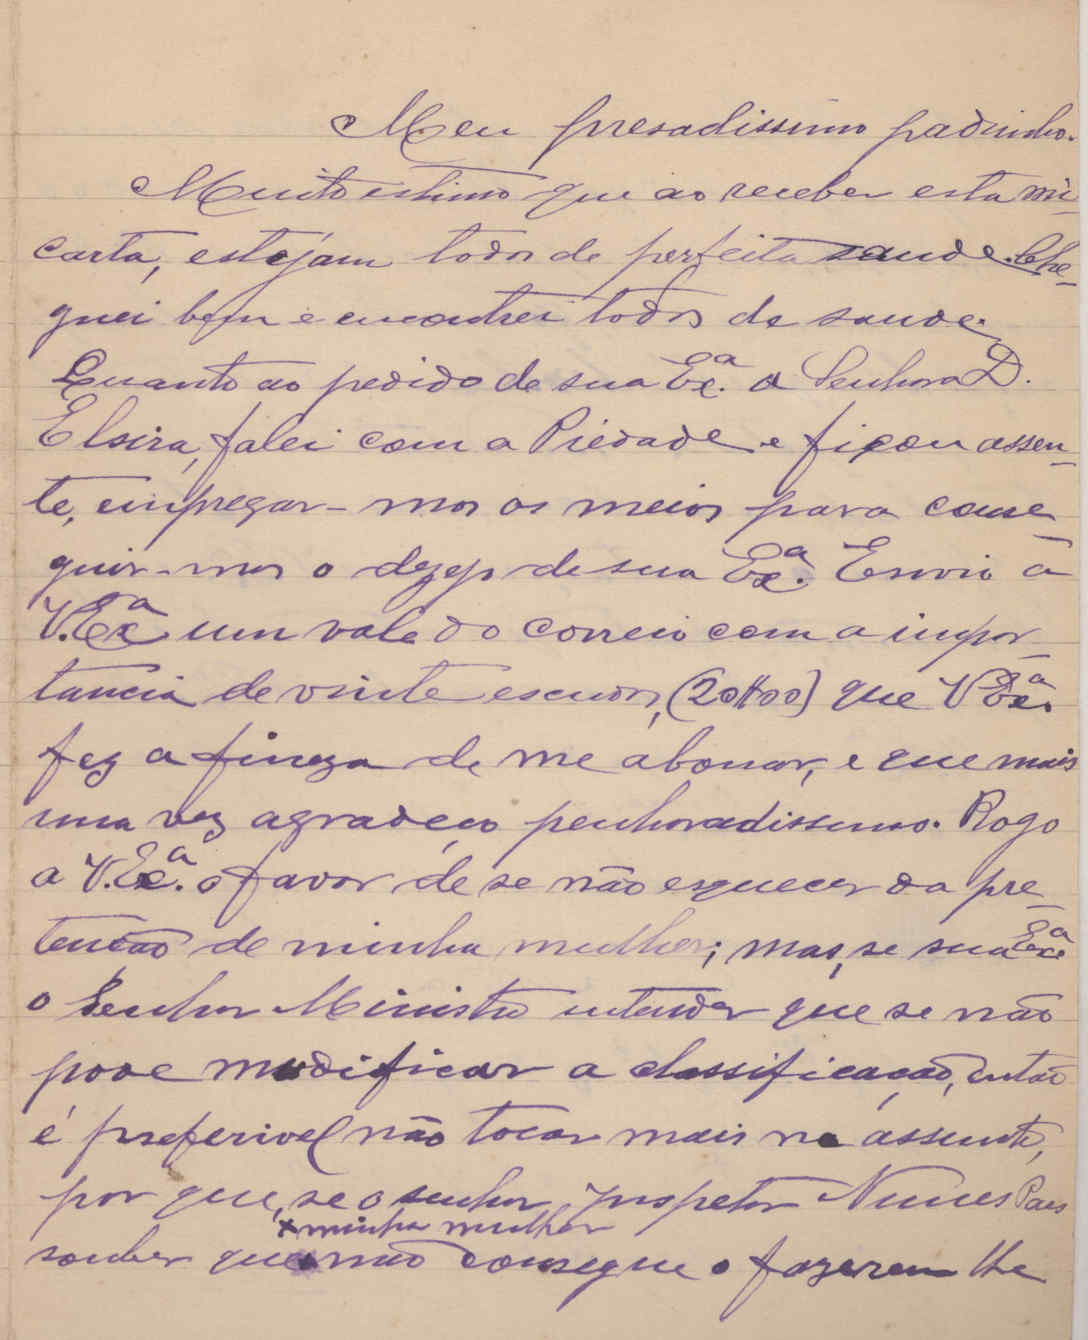 Meu presadissimo padrinho.
Muito estimo que ao receber esta mi-
carta, estejam todos de perfeita saude. Che-
guei bem e encontrei todos de saude.
Quanto ao pedido de sua Exª. a Senhora D.
Elsira, falei com a Piedade e ficou assen-
te, empregar-mos os meios para conse-
guir-mos o dezejo de sua Exª. Envio a
V. Exª um vale do correio com a impor-
tancia de vinte escudos, (20$00) que V Exª.
fez a fineza de me abonar, e que mais
uma vez agradeço penhoradissimo. Rogo
a V. Exª. o favor de se não esquecer da pre-
tenção de minha mulher; mas, se sua Exª
o Senhor Ministro entender que se não
pode modificar a classificação, então
é preferivel não tocar mais no assunto,
por que, se o senhor inspetor Nunes Paes
x minha mulher
souber que não consegue o fazerem lhe